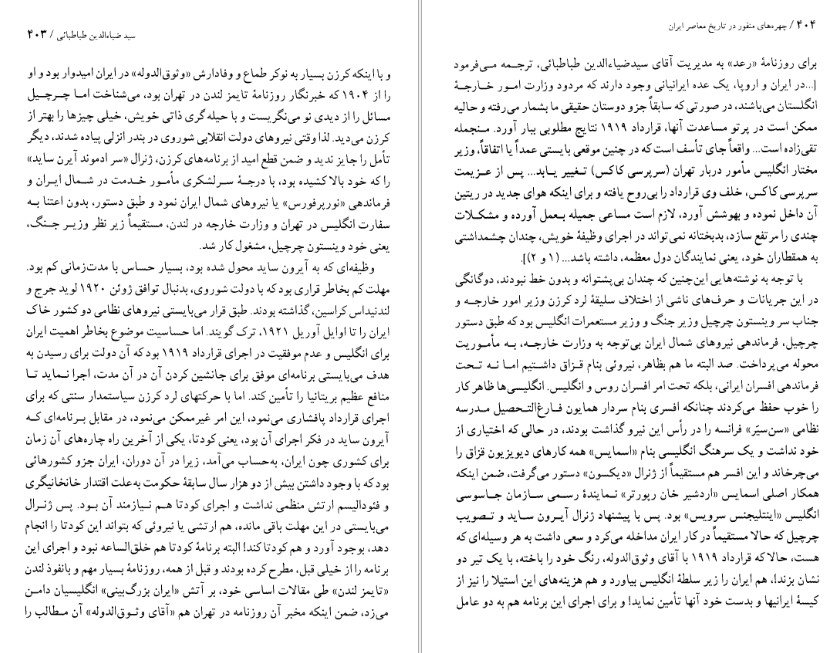 سید ضیاءالدین طباطبائی / ۴۰۳
و با اینکه کرزن بسیار به نوکر طماع و وفادارش «وثوق‌الدوله» در ایران امیدوار بود، و او
را از ۱۹۰۴ که خبرنگار روزنامهٔ تایمز لندن در تهران بود، می‌شناخت اما چرچیل
مسائل را از دیدی نو می‌نگریست و با حیله‌گری ذاتی خویش، خیلی چیزها را بهتر از
کرزن می‌دید. لذا وقتی نیروهای دولت انقلابی شوروی در بندر انزلی پیاده شدند، دیگر
تأمل را جایز ندید و ضمن قطع امید از برنامه‌های کرزن، ژنرال «سر ادموند آیرن ساید»
را که خود بالا کشیده بود، با درجهٔ سرلشکری مأمور خدمت در شمال ایران و
فرماندهی «نورپرفورس» یا نیروهای شمال ایران نمود و طبق دستور، بدون اعتنا به
سفارت انگلیس در تهران و وزارت خارجه در لندن، مستقیماً زیر نظر وزیر جنگ،
یعنی خود وینستون چرچیل، مشغول کار شد.
وظیفه‌ای که به آیرون ساید محول شده بود، بسیار حساس با مدت‌زمانی کم بود.
مهلت کم بخاطر قراری بود که با دولت شوروی، بدنبال توافق ژوئن ۱۹۲۰ لوید جرج و
لندنیداس کراسین، گذاشته بودند. طبق قرار می‌بایستی نیروهای نظامی دو کشور خاک
ایران را تا اوایل آوریل ۱۹۲۱، ترک گویند. اما حساسیت موضوع بخاطر اهمیت ایران
برای انگلیس و عدم موفقیت در اجرای قرارداد ۱۹۱۹ بود که آن دولت برای رسیدن به
هدف می‌بایستی برنامه‌ای موفق برای جانشین کردن آن در آن مدت، اجرا نماید تا
منافع عظیم بریتانیا را تأمین کند. اما با حرکتهای لرد کرزن سیاستمدار سنتی که برای
اجرای قرارداد پافشاری می‌نمود، این امر غیرممکن می‌نمود، در مقابل برنامه‌ای کـه
آیرون ساید در فکر اجرای آن بود، یعنی کودتا، یکی از آخرین راه چاره‌های آن زمان
برای کشوری چون ایران، به‌حساب می‌آمد، زیرا در آن دوران، ایران جزو کشورهائی
بود که با وجود داشتن بیش از دو هزار سال سابقهٔ حکومت به‌علت اقتدار خانخانیگری
و فئودالیسم ارتش منظمی نداشت و اجرای کودتا هـم نیـازمند آن بـود. پس ژنـرال
می‌بایستی در این مهلت باقی مانده، هم ارتشی یا نیروئی که بتواند این کودتا را انجام
دهد، بوجود آورد و هم کودتا کند! البته برنامهٔ کودتا هم خلق‌الساعه نبود و اجرای این
برنامه را از خیلی قبل، مطرح کرده بودند و قبل از همه، روزنامهٔ بسیار مهم و بانفوذ لندن
«تایمز لندن» طی مقالات اساسی خود، بر آتش «ایران بزرگ‌بینی» انگلیسیان دامـن
می‌زد، ضمن اینکه مخبر آن روزنامه در تهران هم «آقای وثـوق‌الدوله» آن مـطالب را
۴۰۴ / چهره‌های منفور در تاریخ معاصر ایران
برای روزنامهٔ «رعد» به مدیریت آقای سیدضیاءالدین طباطبائی، ترجمه می‌فرمود
[...در ایران و اروپا، یک عده ایرانیانی وجود دارند که مردود وزارت امور خارجـهٔ
انگلستان می‌باشند، در صورتی که سابقاً جزو دوستان حقیقی ما بشمار می‌رفته و حالیه
ممکن است در پرتو مساعدت آنها، قرارداد ۱۹۱۹ نتایج مطلوبی ببار آورد. مـنجمله
تقی‌زاده است... واقعاً جای تأسف است که در چنین موقعی بایستی عمداً یا اتفاقاً، وزیر
مختار انگلیس مأمور دربار تهران (سرپرسی کاکس) تغییر یـابد... پس از عـزیمت
سرپرسی کاکس، خلف وی قرارداد را بی‌روح یافته و برای اینکه هوای جدید در ریتین
آن داخل نموده و بهوشش آورد، لازم است مساعی جمیله بـعمل آورده و مشکـلات
چندی را مرتفع سازد، بدبختانه نمی‌تواند در اجرای وظیفهٔ خویش، چندان چشمداشتی
به همقطاران خود، یعنی نمایندگان دول معظمه، داشته باشد... (۱ و ۲)].
با توجه به نوشته‌هایی این‌چنین که چندان بی‌پشتوانه و بدون خط نبودند، دوگانگی
در این جریانات و حرف‌های ناشی از اختلاف سلیقهٔ لرد کرزن وزیر امور خارجـه و
جناب سر وینستون چرچیل وزیر جنگ و وزیر مستعمرات انگلیس بود که طبق دستور
چرچیل، فرماندهی نیروهای شمال ایران بی‌توجه به وزارت خارجـه، بـه مأمـوریت
محوله می‌پرداخت. صد البته ما هم بظاهر، نیروئی بنام قـزاق داشتـیم امـا نـه تـحت
فرماندهی افسران ایرانی، بلکه تحت امر افسران روس و انگلیس. انگلیسی‌ها ظاهر کار
را خوب حفظ می‌کردند چنانکه افسری بنام سردار همایون فـارغ‌التـحصیل مـدرسه
نظامی «سن‌سیّر» فرانسه را در رأس این نیرو گذاشت بودند، در حالی که اختیاری از
خود نداشت و یک سرهنگ انگلیسی بنام «اسمایس» همه کارهای دیویزیون قزاق را
می‌چرخاند و این افسر هم مستقیماً از ژنرال «دیکسون» دستور می‌گرفت، ضمن اینکه
همکار اصلی اسمایس «اردشیر خان رپورتر» نـمایندهٔ رسـمی سازمان جـاسوسی
انگلیس «اینتلیجنس سرویس» بود. پس با پیشنهاد ژنرال آیـرون سـاید و تـصویب
چرچیل که حالا مستقیماً در کار ایران مداخله می‌کرد و سعی داشت به هر وسیله‌ای که
هست، حالا که قرارداد ۱۹۱۹ با آقای وثوق‌الدوله، رنگ خود را باخته، با یک تیر دو
نشان بزند!، هم ایران را زیر سلطهٔ انگلیس بیاورد و هم هزینه‌های این استیلا را نیز از
کیسهٔ ایرانیها و بدست خود آنها تأمین نماید! و برای اجرای این برنامه هم به دو عامل